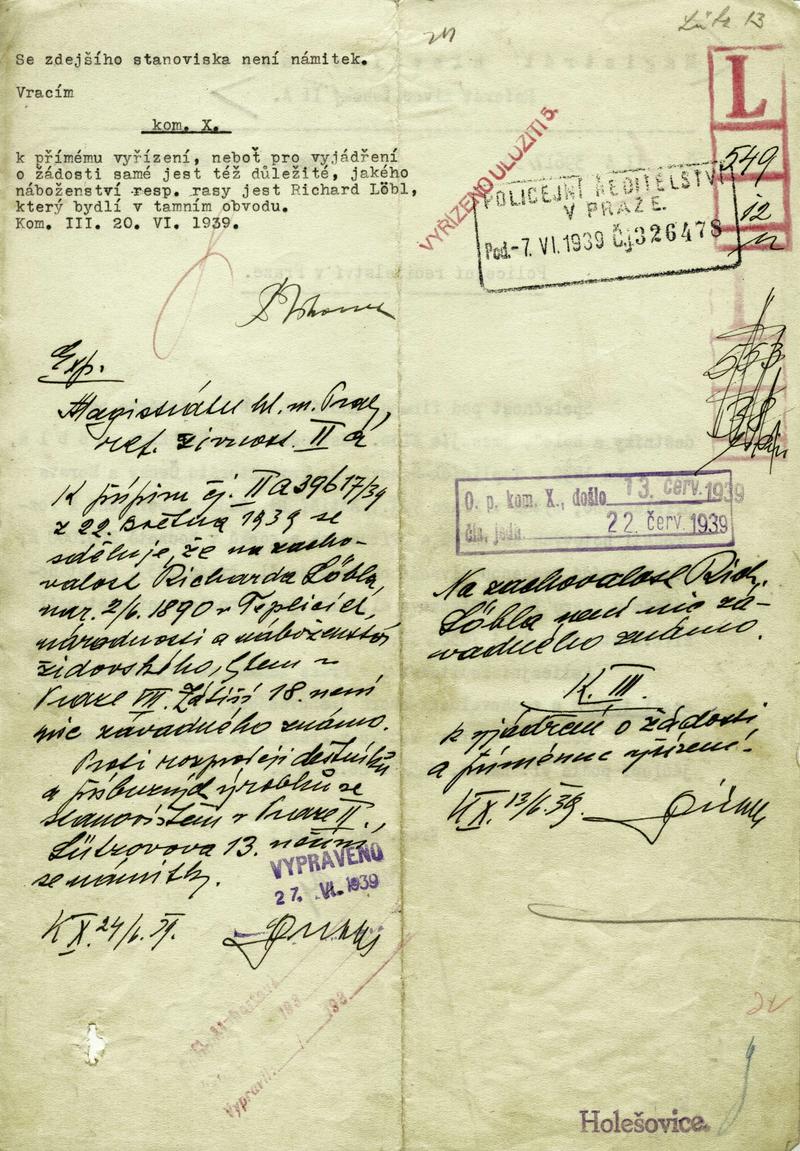 Se zdejšího stanoviska není námitek.
Vracím
kom. X.
k přímému vyřízení, neboť pro vyjádření
o žádosti samé jest též důležité, jakého
náboženství resp. rasy jest Richard Löbl,
který bydlí v tamním obvodu.
Kom. III. 20. VI. 1939.
Exp.
Magistrátu hl. m. Prahy,
ref. živnost. II a
K přípisu čj. II a 39617/39
z 22. května 1939 se
sděluje, že na zacho-
valost Richarda Löbla,
nar. 2/6. 1890 v Teplicích,
národnosti a náboženství
židovského, bytem v
Praze VII. Zátiší 18. není
nic závadného známo.
Proti rozprodeji deštníků
a příbuzných výrobků se
stanovištěm v Praze II.,
Lützovova 13. nečiní
se námitky.
VYPRAVENO
27. VI. 1939
K X. 24/6. 39.
Vypravil:
Lütz 13
L
549
12
VYŘÍZENO ULOŽITI 5.
POLICEJNÍ ŘEDITELSTVÍ
V PRAZE.
Pod. -7. VI. 1939 Čj 326478
553
138
O. p. kom. X., došlo 13. červ. 1939
čís. jedn. 22. červ. 1939
Na zachovalost Rich.
Löbla není nic zá-
vadného známo.
K. III.
k vjádření o žádosti
a přímému vyřízení.
K X. 13/6. 39.
Holešovice.